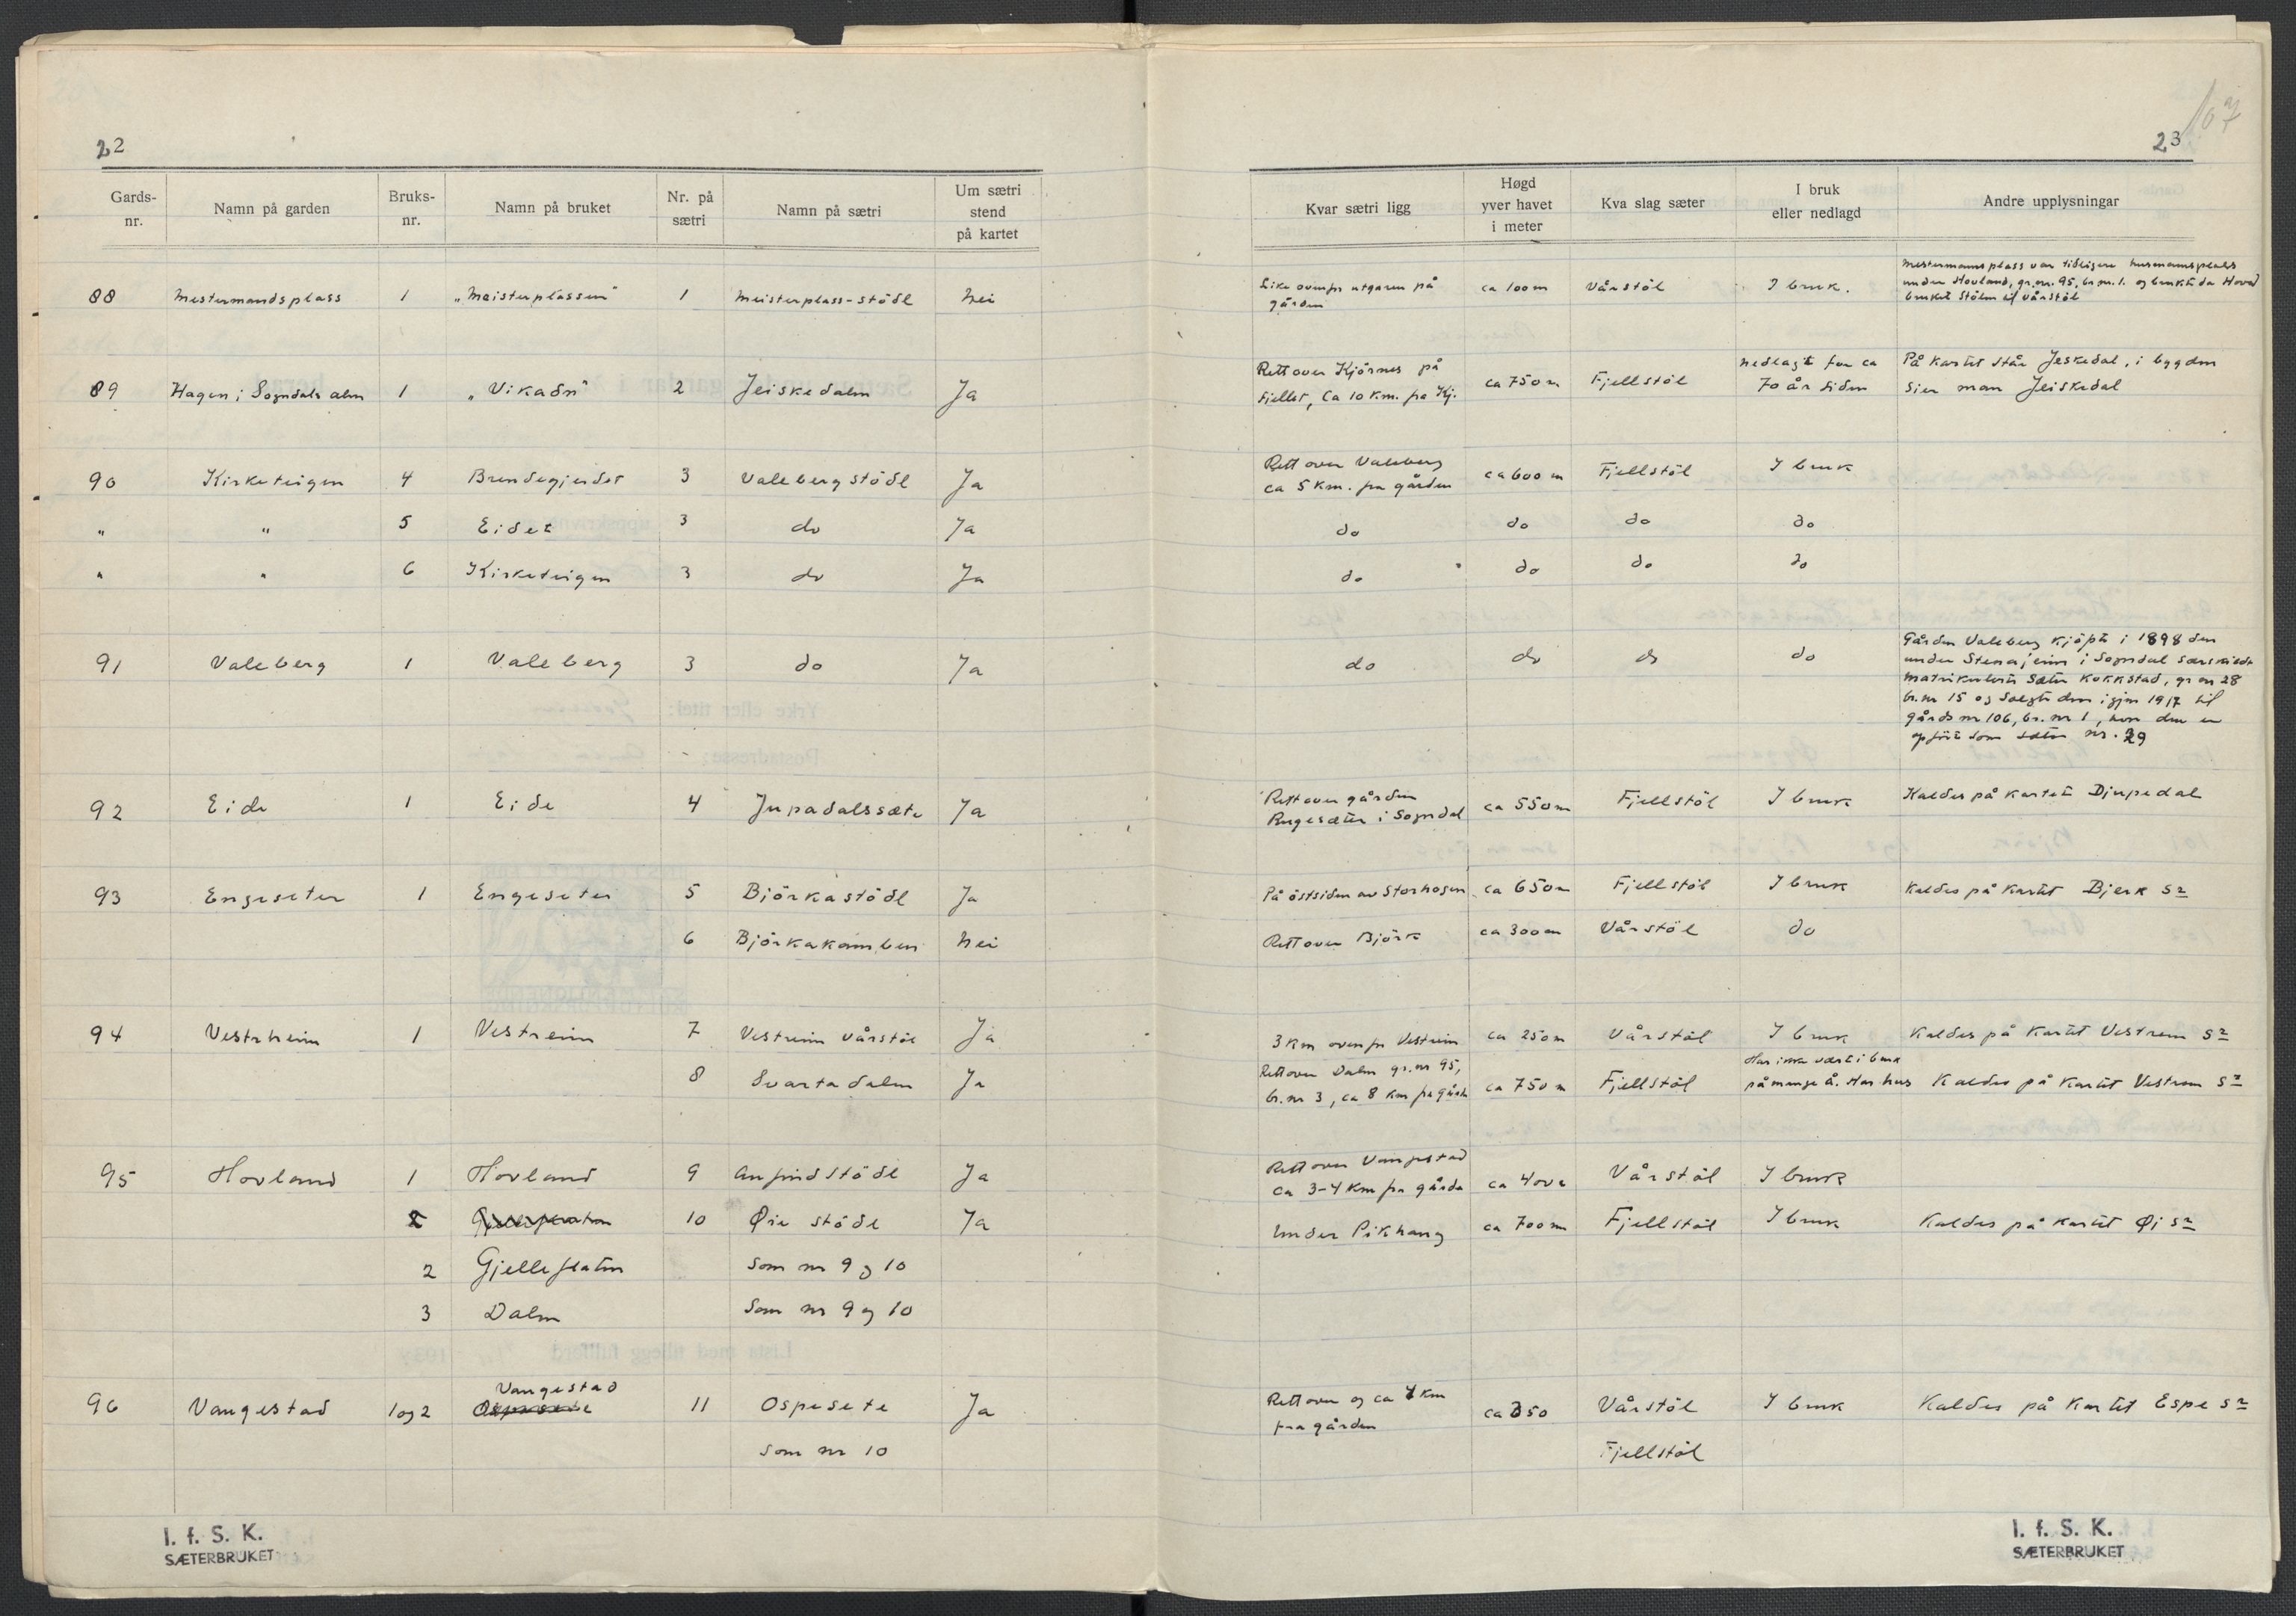 22
Gards-nr. Namn på garden Bruks-nr. Namn på bruket Nr. på sætri Namn på sætri Um sætri stend på kartet
88 Mestermandsplass 1 „Meisterplassen" 1 Meisterplass-stödl Nei
89 Hagen i Sogndals alm 1 „Vikadn" 2 Jeiskedalen Ja
90 Kirketeigen 4 Brendegjerdet 3 Valeberg stödl Ja
" " 5 Eidet 3 do Ja
" " 6 Kirketeigen 3 do Ja
91 Valeberg 1 Valeberg 3 do Ja
92 Eide 1 Eide 4 Jupadalssæte Ja
93 Engeseter 1 Engeseter 5 Björkastödl Ja
6 Björkakamben Nei
94 Vestrheim 1 Vestreim 7 Vestreim vårstöl Ja
8 Svartadalen Ja
95 Hovland 1 Hovland 9 Anfindstödl Ja
10 Øie stödl Ja
2 Gjelleflaten Som nr 9 og 10
3 Dalen Som nr 9 og 10
Vangestad
96 Vangestad 1 og 2 11 Ospesete Ja
Som nr 10
I. f. S. K.
SÆTERBRUKET
107
23
Kvar sætri ligg Høgd yver havet i meter Kva slag sæter I bruk eller nedlagd Andre upplysningar
Mestermannsplass var tidligere husmannsplass
Like ovenfor utgaren på ca 100 m Vårstöl I bruk. under Hovland, gr.nr. 95, br.nr. 1. og brukte da Hoved
gården bruket Stölen til vårstöl
Rett over Kjörnes på nedlagt for ca På kartet står Jeskedal, i bygden
fjellet, Ca 10 km. fra Kj. ca 750 m Fjellstöl 70 år siden sier man Jeiskedal
Rett over Valeberg
ca 5 km. fra gården ca 600 m Fjellstöl I bruk
do do do do
do do do do
Gården Valeberg kjöpte i 1898 den
do do do do under Stenajerin i Sogndal særskildt
matrikulerte Sæter Kokkstad, gr nr 28
br.nr 15 og solgte den igjen 1917 til
gårds nr 106, br. nr 1, hvor den er
opfört som sæter nr. 29
Rett over gården
Rugesæter i Sogndal ca 550 m Fjellstöl I bruk Kaldes på kartet Djupedal
På östsiden av Storhogen ca 650 m Fjellstöl I bruk Kaldes på kartet Bjerk Sr
Rett over Björk ca 300 m Vårstöl do
3 km ovenfor Vestreim ca 250 m Vårstöl I bruk Kaldes på Kartet Vestrem Sr
Rett over Dalen gr.nr 95, Har ikke vært i bruk
br.nr 3, ca 8 km fra gården ca 750 m Fjellstöl på mange å. Har hus Kaldes på Kartet Vestrem Sr
Rett over Vangestad
ca 3-4 km fra gården ca 400 Vårstöl I bruk
Under Pikhaug ca 700 m Fjellstöl I bruk Kaldes på kartet Øi Sr
Rett over og ca 1 km
fra gården ca 350 Vårstöl I bruk Kaldes på Kartet Espe Sr
Fjellstöl
I. f. S. K.
SÆTERBRUKET